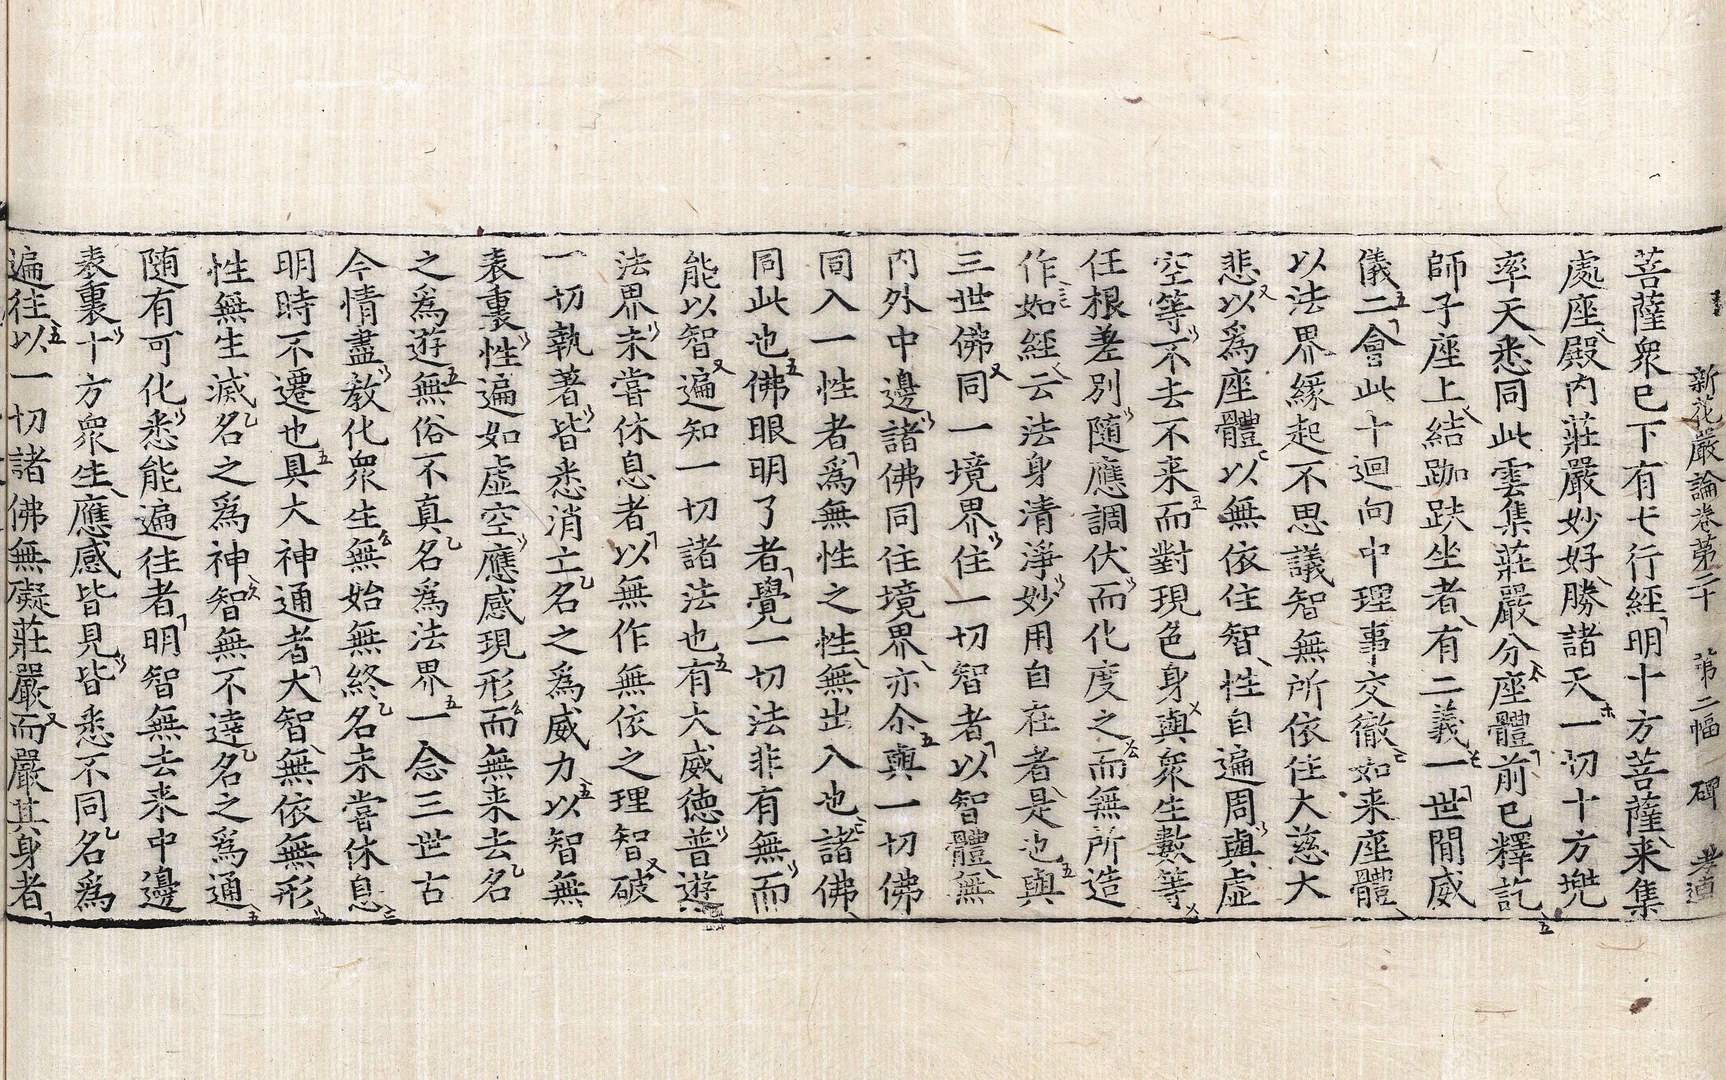 新花嚴論卷苐二十 苐二幅 碑 孝道
菩薩衆巳下有七行經明十方菩薩来集
處座殿内莊嚴妙好勝諸天一切十方兠
率天悉同此雲集莊嚴分座體前已釋訖
師子座上結跏趺坐者有二義一世間威
儀二會此十迴向中理事交徹如来座體
以法界緣起不思議智無所依住大慈大
悲以為座體以無依住智性自遍周與虚
空等不去不来而對現色身與衆生數等
任根差別随應調伏而化度之而無所造
作如經云法身清淨妙用自在者是也與
三世佛同一境界住一切智者以智體無
内外中邊諸佛同住境界亦尒與一切佛
同入一性者為無性之性無出入也諸佛
同此也佛眼明了者覺一切法非有無而
能以智遍知一切諸法也有大威德普遊
法界未甞休息者以無作無依之理智破
一切執著皆悉消立名之為威力以智無
表裏性遍如虚空應感現形而無来去名
之為遊無俗不真名為法界一念三世古
今情盡教化衆生無始無終名未甞休息
明時不遷也具大神通者大智無依無形
性無生滅名之為神智無不達名之為通
随有可化悉能遍往者明智無去来中邊
表裏十方衆生應感皆見皆悉不同名為
遍往以一切諸佛無礙莊嚴而嚴其身者